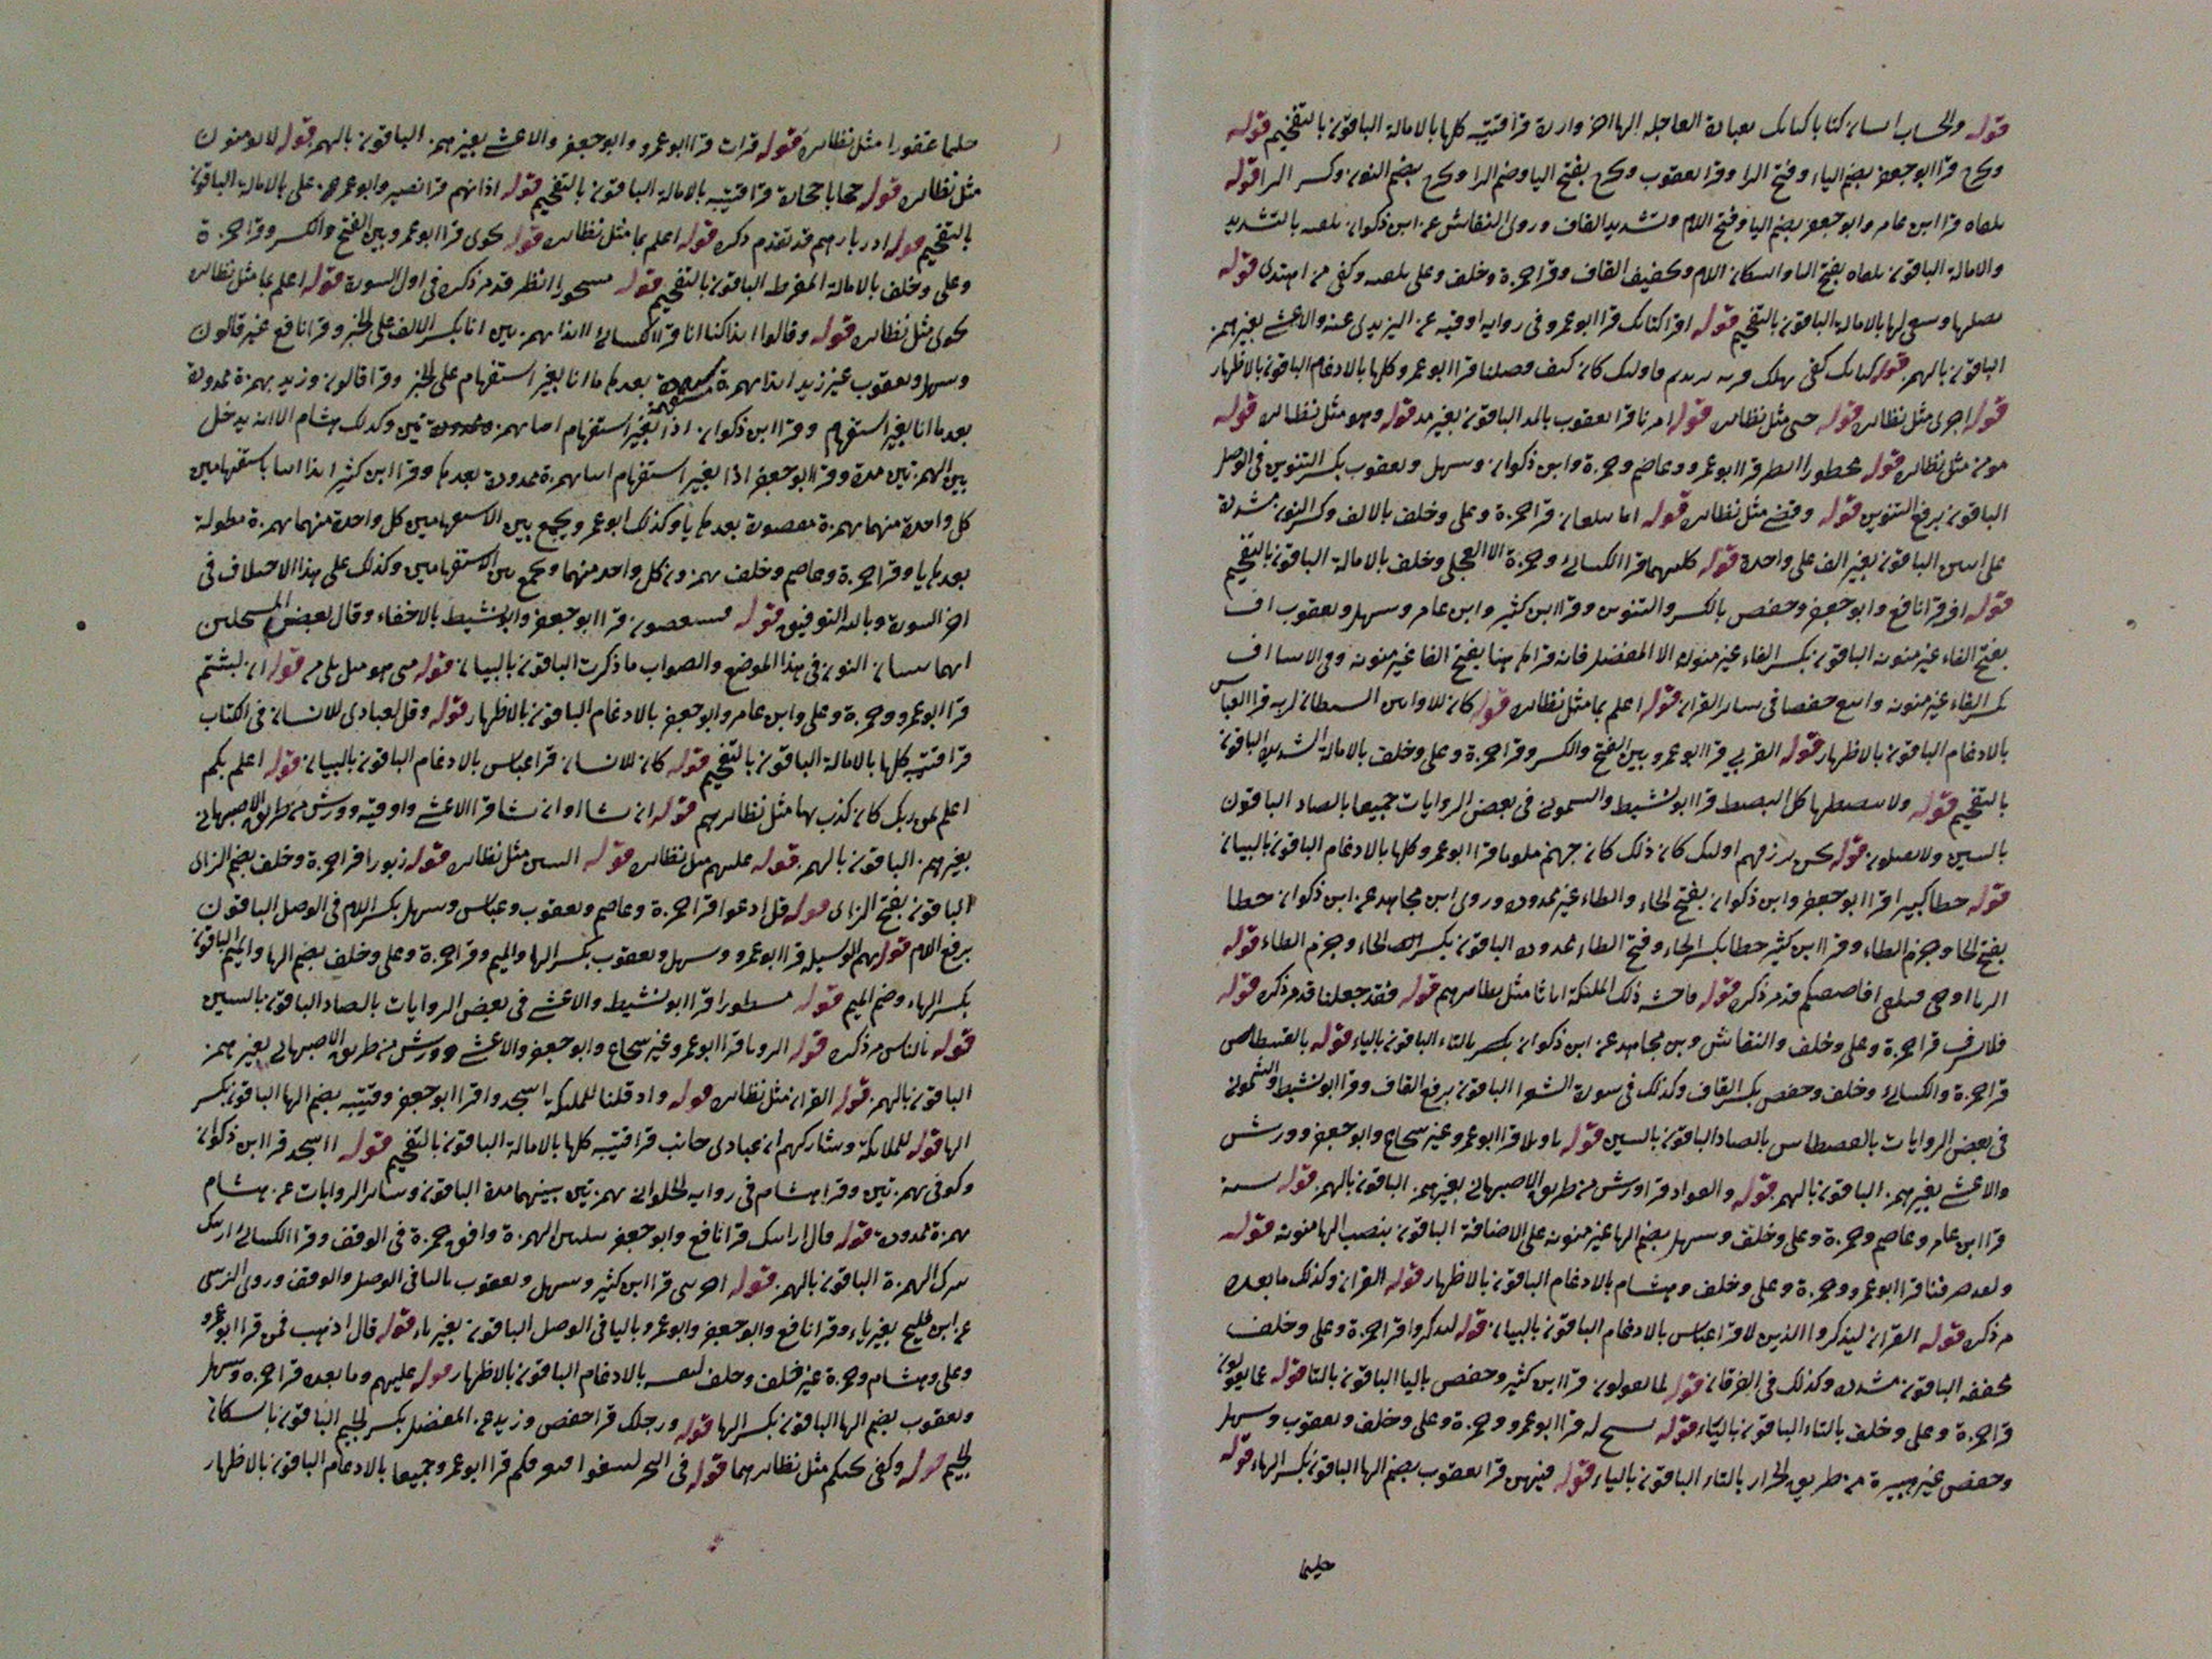 قوله والحساب انسان كتابا كتابك بعباده العاجله الها اخر وازرة قرا قتيبه كلها بالامالة الباقون بالتفخيم قوله
وكح قرا ابو جعفر بضم الياء وفتح الرا وقرا يعقوب وكح بفتح اليا وضم الرا وكح بضم النون وكسر الرا قوله
يلقاه قرا ابن عامر وابو جعفر بضم اليا وفتح اللام وتشديد القاف وروى النقاش عن ابن ذكوان بالتشديد
والامالة الباقون يلقاه بفتح اليا واسكان اللام وكفيف القاف وقرا حمزة وخلف وعلى يلقيه وكفى من اهتدى قوله
يصلها وسعى لها بالامالة الباقون بالتفخيم قوله اقرا كتابك قرا ابو عمرو فى رواية اوقيه عن اليزيدى عنه والاعشى بغير همز
الباقون بالهمز قوله كتابك كفى نهلك قريه نريد ثم اوليك كان كيف فضلنا قرا ابو عمرو كلها بالادغام الباقون بالاظهار
قوله اخرى مثل نظايره قوله حتى مثل نظايره قوله امرنا قرا يعقوب بالمد الباقون بغير مد قوله وهو مثل نظايره قوله
مومن مثل نظايره قوله محظورا انظر قرا ابو عمرو وعاصم وحمزة وابن ذكوان وسهل ويعقوب بكسر التنوين فى الوصل
الباقون برفع التنوين قوله وقضى مثل نظايره قوله اما يبلغان قرا حمزة وعلى وخلف بالالف وكسر النون مشددة
على اثنين الباقون بغير الف على واحدة قوله كلهما قرا الكسائى وحمزة الا العجلى وخلف بالامالة الباقون بالتفخيم
قوله اف قرا نافع وابو جعفر وحفص بالكسر والتنوين وقرا ابن كثير وابن عامر وسهل ويعقوب اف
بفتح الفاء غير منونه الباقون بكسر الفاء غير منونه الا المفضل فانه قرا هاهنا بفتح الفا غير منونه وفى الانبيا اف
بكسر الفاء غير منونه واتبع حفصا فى سائر القران قوله اعلم بما مثل نظايره قوله كان للاوابين الشيطان لربه قرا العباس
بالادغام الباقون بالاظهار قوله القربى قرا ابو عمرو بين الفتح والكسر وقرا حمزة وعلى وخلف بالامالة الشديده الباقون
بالتفخيم قوله ولا تبسطها كل البسط قرا ابو نشيط والشمونى فى بعض الروايات جميعا بالصاد الباقون
بالسين ولا تقتلوا قوله نحن نرزقهم اولئك كان ذلك كان جهنم ملوما قرا ابو عمرو كلها بالادغام الباقون بالبيان
قوله خطا كبيرا قرا ابو جعفر وابن ذكوان بفتح الخاء والطاء غير ممدودة وروى ابن مجاهد عن ابن ذكوان خطا
بفتح الخا وجزم الطاء وقرا ابن كثير خطا بكسر الخاء وفتح الطاء ممدوده الباقون بكسر الخاء وجزم الطاء قوله
الزنا اوحى فتلقى افاصفيكم قد مر ذكره قوله فاحشه ذلك الملئكة اناثا مثل نظايرهم قوله فقد جعلنا قد مر ذكره قوله
فلا يسرف قرا حمزة وعلى وخلف والنقاش وابن مجاهد عن ابن ذكوان بالتاء الباقون بالياء قوله بالقسطاس
قرا حمزة والكسائى وخلف وحفص بكسر القاف وكذلك فى سورة الشعرا الباقون برفع القاف وقرا ابو نشيط والشمونى
فى بعض الروايات بالقصطاس بالصاد الباقون بالسين قوله تاويلا قرا ابو عمرو غير شجاع وابو جعفر وورش
والاعشى بغير همز الباقون بالهمز قوله والفواد قرا ورش من طريق الاصبهانى بغير همز الباقون بالهمز قوله سيئه
قرا ابن عامر وعاصم وحمزة وعلى وخلف وسهل بضم الها غير منونه على الاضافة الباقون بنصب الها منونه قوله
ولقد صرفنا قرا ابو عمرو وحمزة وعلى وخلف وهشام بالادغام الباقون بالاظهار قوله القران وكذلك ما بعده
مر ذكره قوله القران ليذكروا الذين لا قرا عباس بالادغام الباقون بالبيان قوله ليذكروا قرا حمزة وعلى وخلف
مخففه الباقون مشدده وكذلك فى الفرقان قوله لما يقولون قرا ابن كثير وحفص باليا الباقون بالتا قوله عما يقولون
قرا حمزة وعلى وخلف بالتاء الباقون بالياء قوله يسبح له قرا ابو عمرو وحمزة وعلى وخلف ويعقوب وسهل
وحفص غير هبيرة من طريق الخراز بالتاء الباقون بالياء قوله فيهن قرا يعقوب بضم الها الباقون بكسر الهاء قوله
حليما
حليما غفورا مثل نظايره قوله قرات قرا ابو عمرو وابو جعفر والاعشى بغير همز الباقون بالهمز قوله لا يومنون
مثل نظايره قوله حجابا حجارة قرا قتيبه بالامالة الباقون بالتفخيم قوله اذانهم قرا نصير وابو عمر عن على بالامالة الباقون
بالتفخيم قوله ادبارهم قد تقدم ذكره قوله اعلم بما مثل نظايره قوله نجوى قرا ابو عمرو بين الفتح والكسر وقرا حمزة
وعلى وخلف بالامالة المفرطه الباقون بالتفخيم قوله مسحورا انظر قد مر ذكره فى اول السورة قوله اعلم بما مثل نظايره
نجوى مثل نظايره قوله وقالوا ائذا كنا انا قرا الكسائى ائذا بهمزتين انا بكسر الالف على الخبر وقرا نافع غير قالون
وسهل ويعقوب غير زيد ائذا بهمزة مقصورة بعدها يا انا بغير استفهام على الخبر وقرا قالون وزيد بهمزة ممدودة
بعدها انا بغير استفهام وقرا ابن ذكوان اذا بغير استفهام ائنا بهمزتين وكذلك هشام الا انه يدخل
بين الهمزتين مدة وقرا ابو جعفر اذا بغير استفهام ائنا بهمزة ممدودة بعدها وقرا ابن كثير ائذا ائنا باستفهامين
كل واحدة منهما بهمزة مقصورة بعدها يا وكذلك ابو عمرو يجمع بين الاستفهامين كل واحدة منهما بهمزة مطولة
بعدها يا وقرا حمزة وعاصم وخلف بهمزتين كل واحد منهما ويجمع بين الاستفهامين وكذلك على هذا الاختلاف فى
اخر السورة وبالله التوفيق قوله فسينغضون قرا ابو جعفر وابو نشيط بالاخفاء وقال بعض
انهما يبينان النون فى هذا الموضع والصواب ما ذكرت الباقون بالبيان قوله متى هو مثل بلى مر قوله ان لبثتم
قرا ابو عمرو وحمزة وعلى وابن عامر وابو جعفر بالادغام الباقون بالاظهار قوله وقل لعبادى للانسان فى الكتاب
قرا قتيبه كلها بالامالة الباقون بالتفخيم قوله كان للانسان قرا عباس بالادغام الباقون بالبيان قوله اعلم بكم
اعلم بمن ربك كان كذب بها مثل نظايرهم قوله ان يشا او ان يشا قرا الاعشى واوقيه وورش من طريق الاصبهانى
بغير همز الباقون بالهمز قوله عليهم مثل نظايره قوله النبيين مثل نظايره قوله زبورا قرا حمزة وخلف بضم الزاى
الباقون بفتح الزاى قوله قل ادعوا قرا حمزة وعاصم ويعقوب وعباس وسهل بكسر اللام فى الوصل الباقون
برفع اللام قوله ربهم الوسيلة قرا ابو عمرو وسهل ويعقوب بكسر الها والميم وقرا حمزة وعلى وخلف بضم الها والميم الباقون
بكسر الهاء وضم الميم قوله مسطورا قرا ابو نشيط والاعشى فى بعض الروايات بالصاد الباقون بالسين
قوله بالناس مر ذكره قوله الرويا قرا ابو عمرو غير شجاع وابو جعفر والاعشى وورش من طريق الاصبهانى بغير همز
الباقون بالهمز قوله القران مثل نظايره قوله واذ قلنا للملئكة اسجدوا قرا ابو جعفر وقتيبه بضم الها الباقون بكسر
الها قوله للملائكة وشاركهم ان عبادى جانب قرا قتيبه كلها بالامالة الباقون بالتفخيم قوله ااسجد قرا ابن ذكوان
وكوفى بهمزتين وقرا هشام فى رواية الحلوانى بهمزتين بينهما مدة الباقون وسائر الروايات عن هشام
بهمزة ممدودة قوله قال ارايتك قرا نافع وابو جعفر بتليين الهمزة وافق حمزة فى الوقف وقرا الكسائى اريتك
بترك الهمزة الباقون بالهمز قوله اخرتنى قرا ابن كثير وسهل ويعقوب باليا فى الوصل والوقف وروى الزينبى
عن ابن فليح بغير ياء وقرا نافع وابو جعفر وابو عمرو باليا فى الوصل الباقون بغير ياء قوله قال اذهب فمن قرا ابو عمرو
وعلى وهشام وحمزة غير خلف وخلف لنفسه بالادغام الباقون بالاظهار قوله عليهم وما بعده قرا حمزة وسهل
ويعقوب بضم الها الباقون بكسر الها قوله ورجلك قرا حفص وزيد عن المفضل بكسر الجيم الباقون باسكان
الجيم قوله وكفى نجيكم مثل نظايرهما قوله فى البحر لتبتغوا فيغرقكم قرا ابو عمرو جميعا بالادغام الباقون بالاظهار